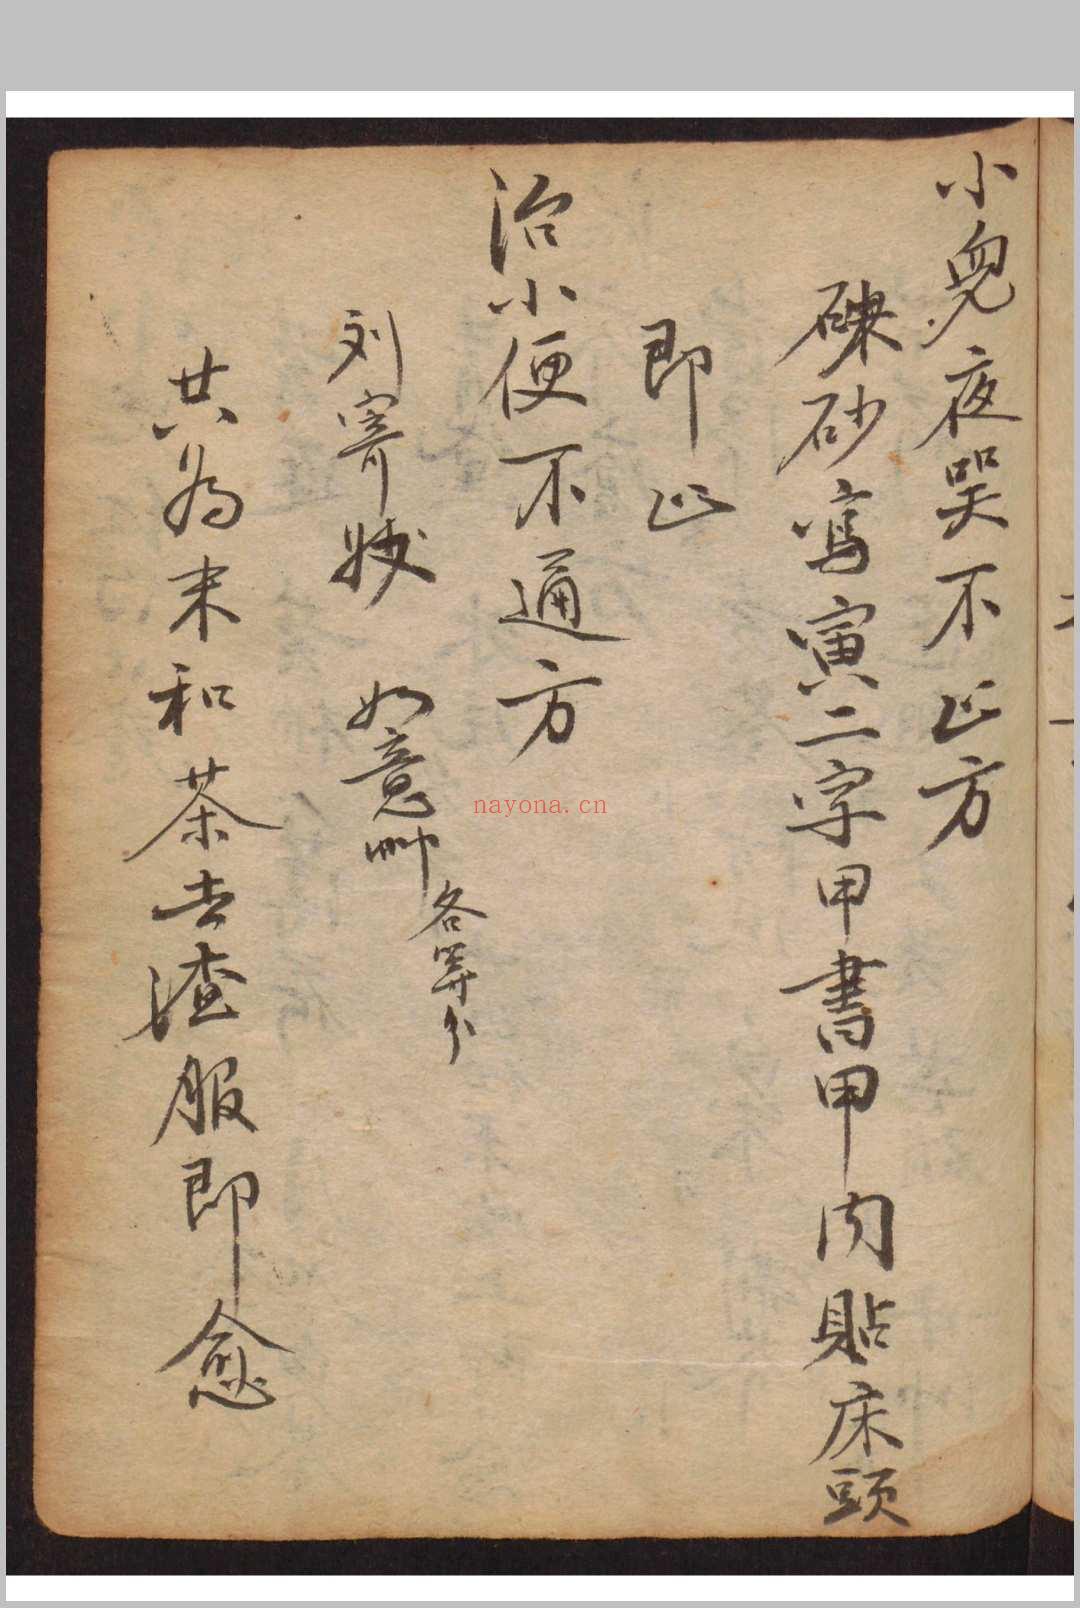 小兒夜哭不止方
硃砂寫寅二字甲書甲内貼床頭
即止
治小便不通方
刘寄 如意艸 各等分
共為末和茶去渣服即愈
nayona.cn